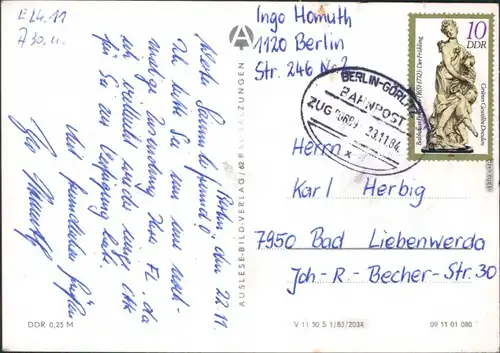 E 24.11
A 30.11.
Berlin, den 22.11.
Werter Sammlerfreund!
Ich bitte Sie um um
Zusendung Ihrer FL. da
ich vielleicht wieder einige AK
für Sie zur Verfügung habe.
Mit freundlichen Grüßen
AUSLESE-BILD-VERLAG / 62 BAD SALZUNGEN
Ingo Homuth
1120 Berlin
Str. 246 No 2
10
DDR
Balthasar Permoser (1651-1732) Der Frühling
Grünes Gewölbe Dresden
BERLIN-GÖRLITZ
BAHNPOST
ZUG 23.11.84
x
Herrn
Karl Herbig
7950 Bad Liebenwerda
Joh-R-Becher-Str.30
DDR 0,25 M
V 11 50 S 1/83/2034
09 11 01 080